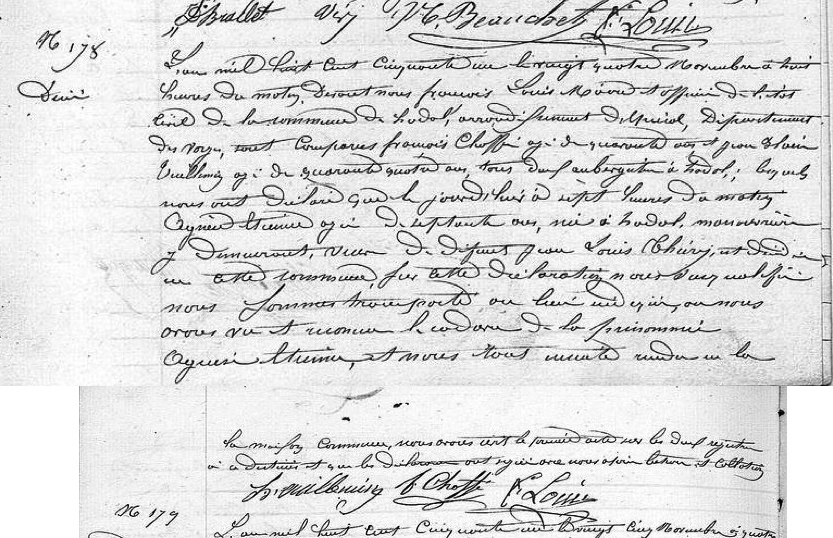 Brallet Very N. Beauchet F. Louis
N 178
Décès
L'an mil huit cent cinquante un le vingt quatre Novembre à huit
heures du matin, Devant nous françois Louis Maire et officier de l'etat
Civil de la commune de hadol, arrondissement d'Epinal, Département
des vosges, sont Comparus françois Choffe agé de quarante ans et jean
Vuillemin agé de quarante quatre ans, tous deux aubergistes à hadol; lesquels
nous ont déclaré que le jour d'hier à sept heures du matin
Etienne agée de septante ans, née à hadol, manouvrière
y demeurant, veuve de défunt jean Louis Thiéry, est décédée en
en cette commune, sur cette déclaration nous
nous sommes transporté au lieu indiqué, ou nous
avons vu et reconnu le cadavre de la prénommée
Etienne, et nous tout ensuite rendu en la
la maison Commune, nous avons écrit le présent acte sur les deux registres
à ce destinés et que les déclarans ont signé avec nous après lecture et collation
Vuillemin f Choffe F. Louis
N 179
L'an mil huit cent Cinquante un le vingt Cinq Novembre à quatre